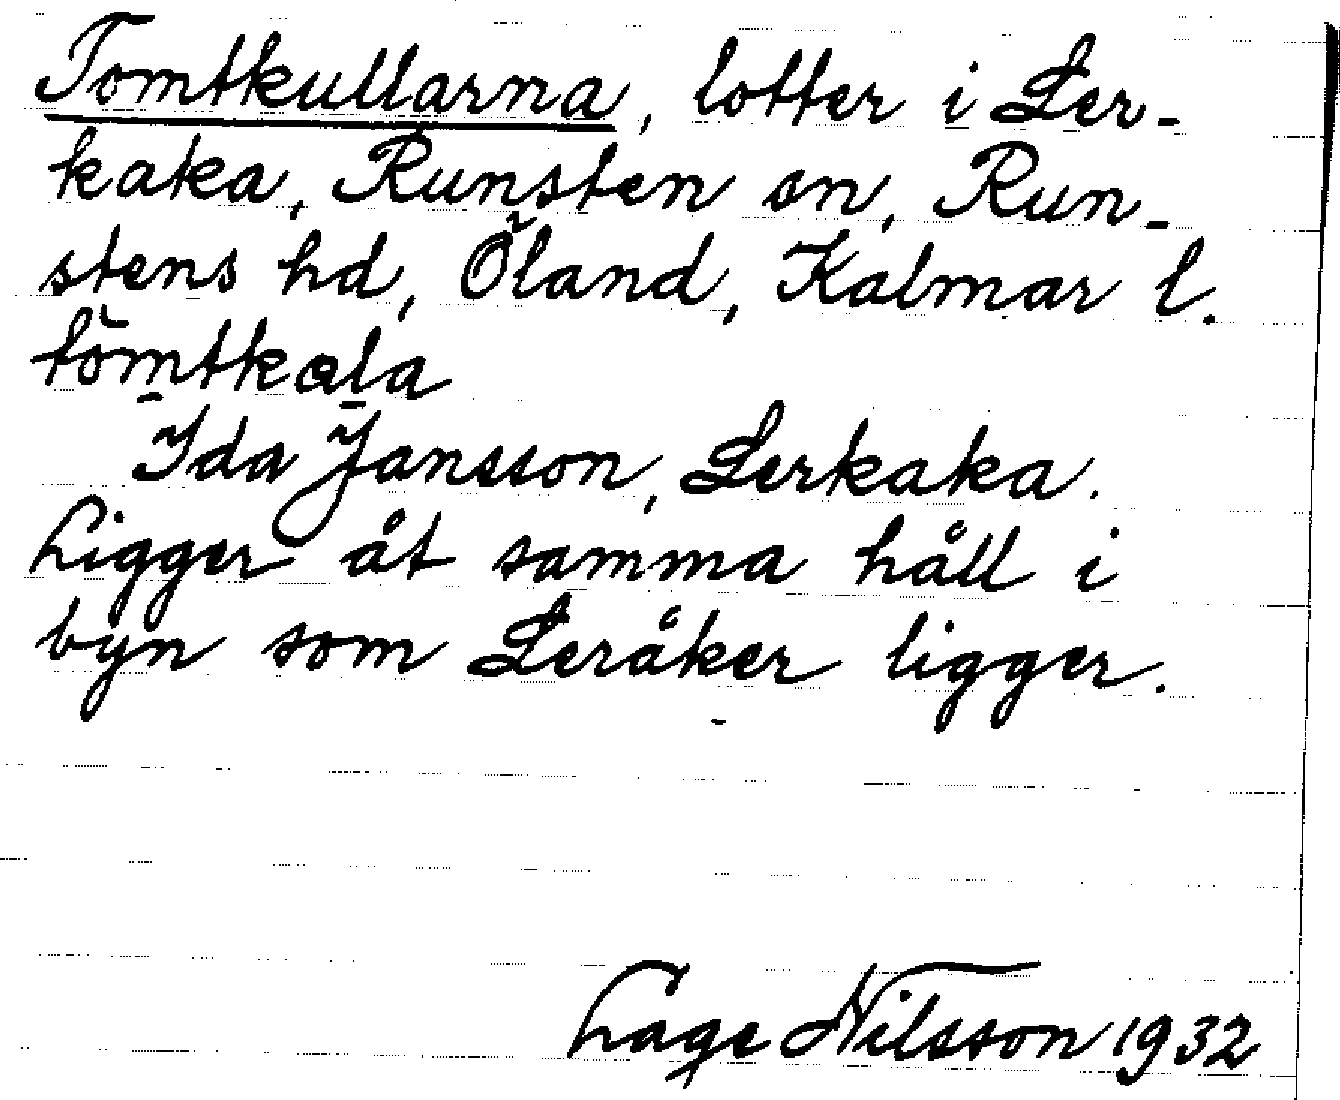 Tomtkullarna, lotter i Ler-
kaka, Runsten sn, Run-
stens hd, Öland, Kalmar l.
tòmtkala
Ida Jansson, Lerkaka.
Ligger åt samma håll i
byn som Leråker ligger.
Lage Nilsson 1932